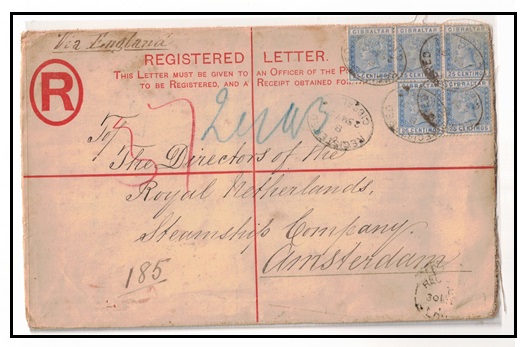 Via England
REGISTERED LETTER.
THIS LETTER MUST BE GIVEN TO AN OFFICER OF THE
TO BE REGISTERED, AND A RECEIPT OBTAINED FOR
R
GIBRALTAR GIBRALTAR GIBRALTAR
25 CENTIMOS 25 CENTIMOS 25 CENTIMOS
GIBRALTAR GIBRALTAR
25 CENTIMOS
37
To
The Directors of the
Royal Netherlands.
Steamship Company.
Amsterdam
185